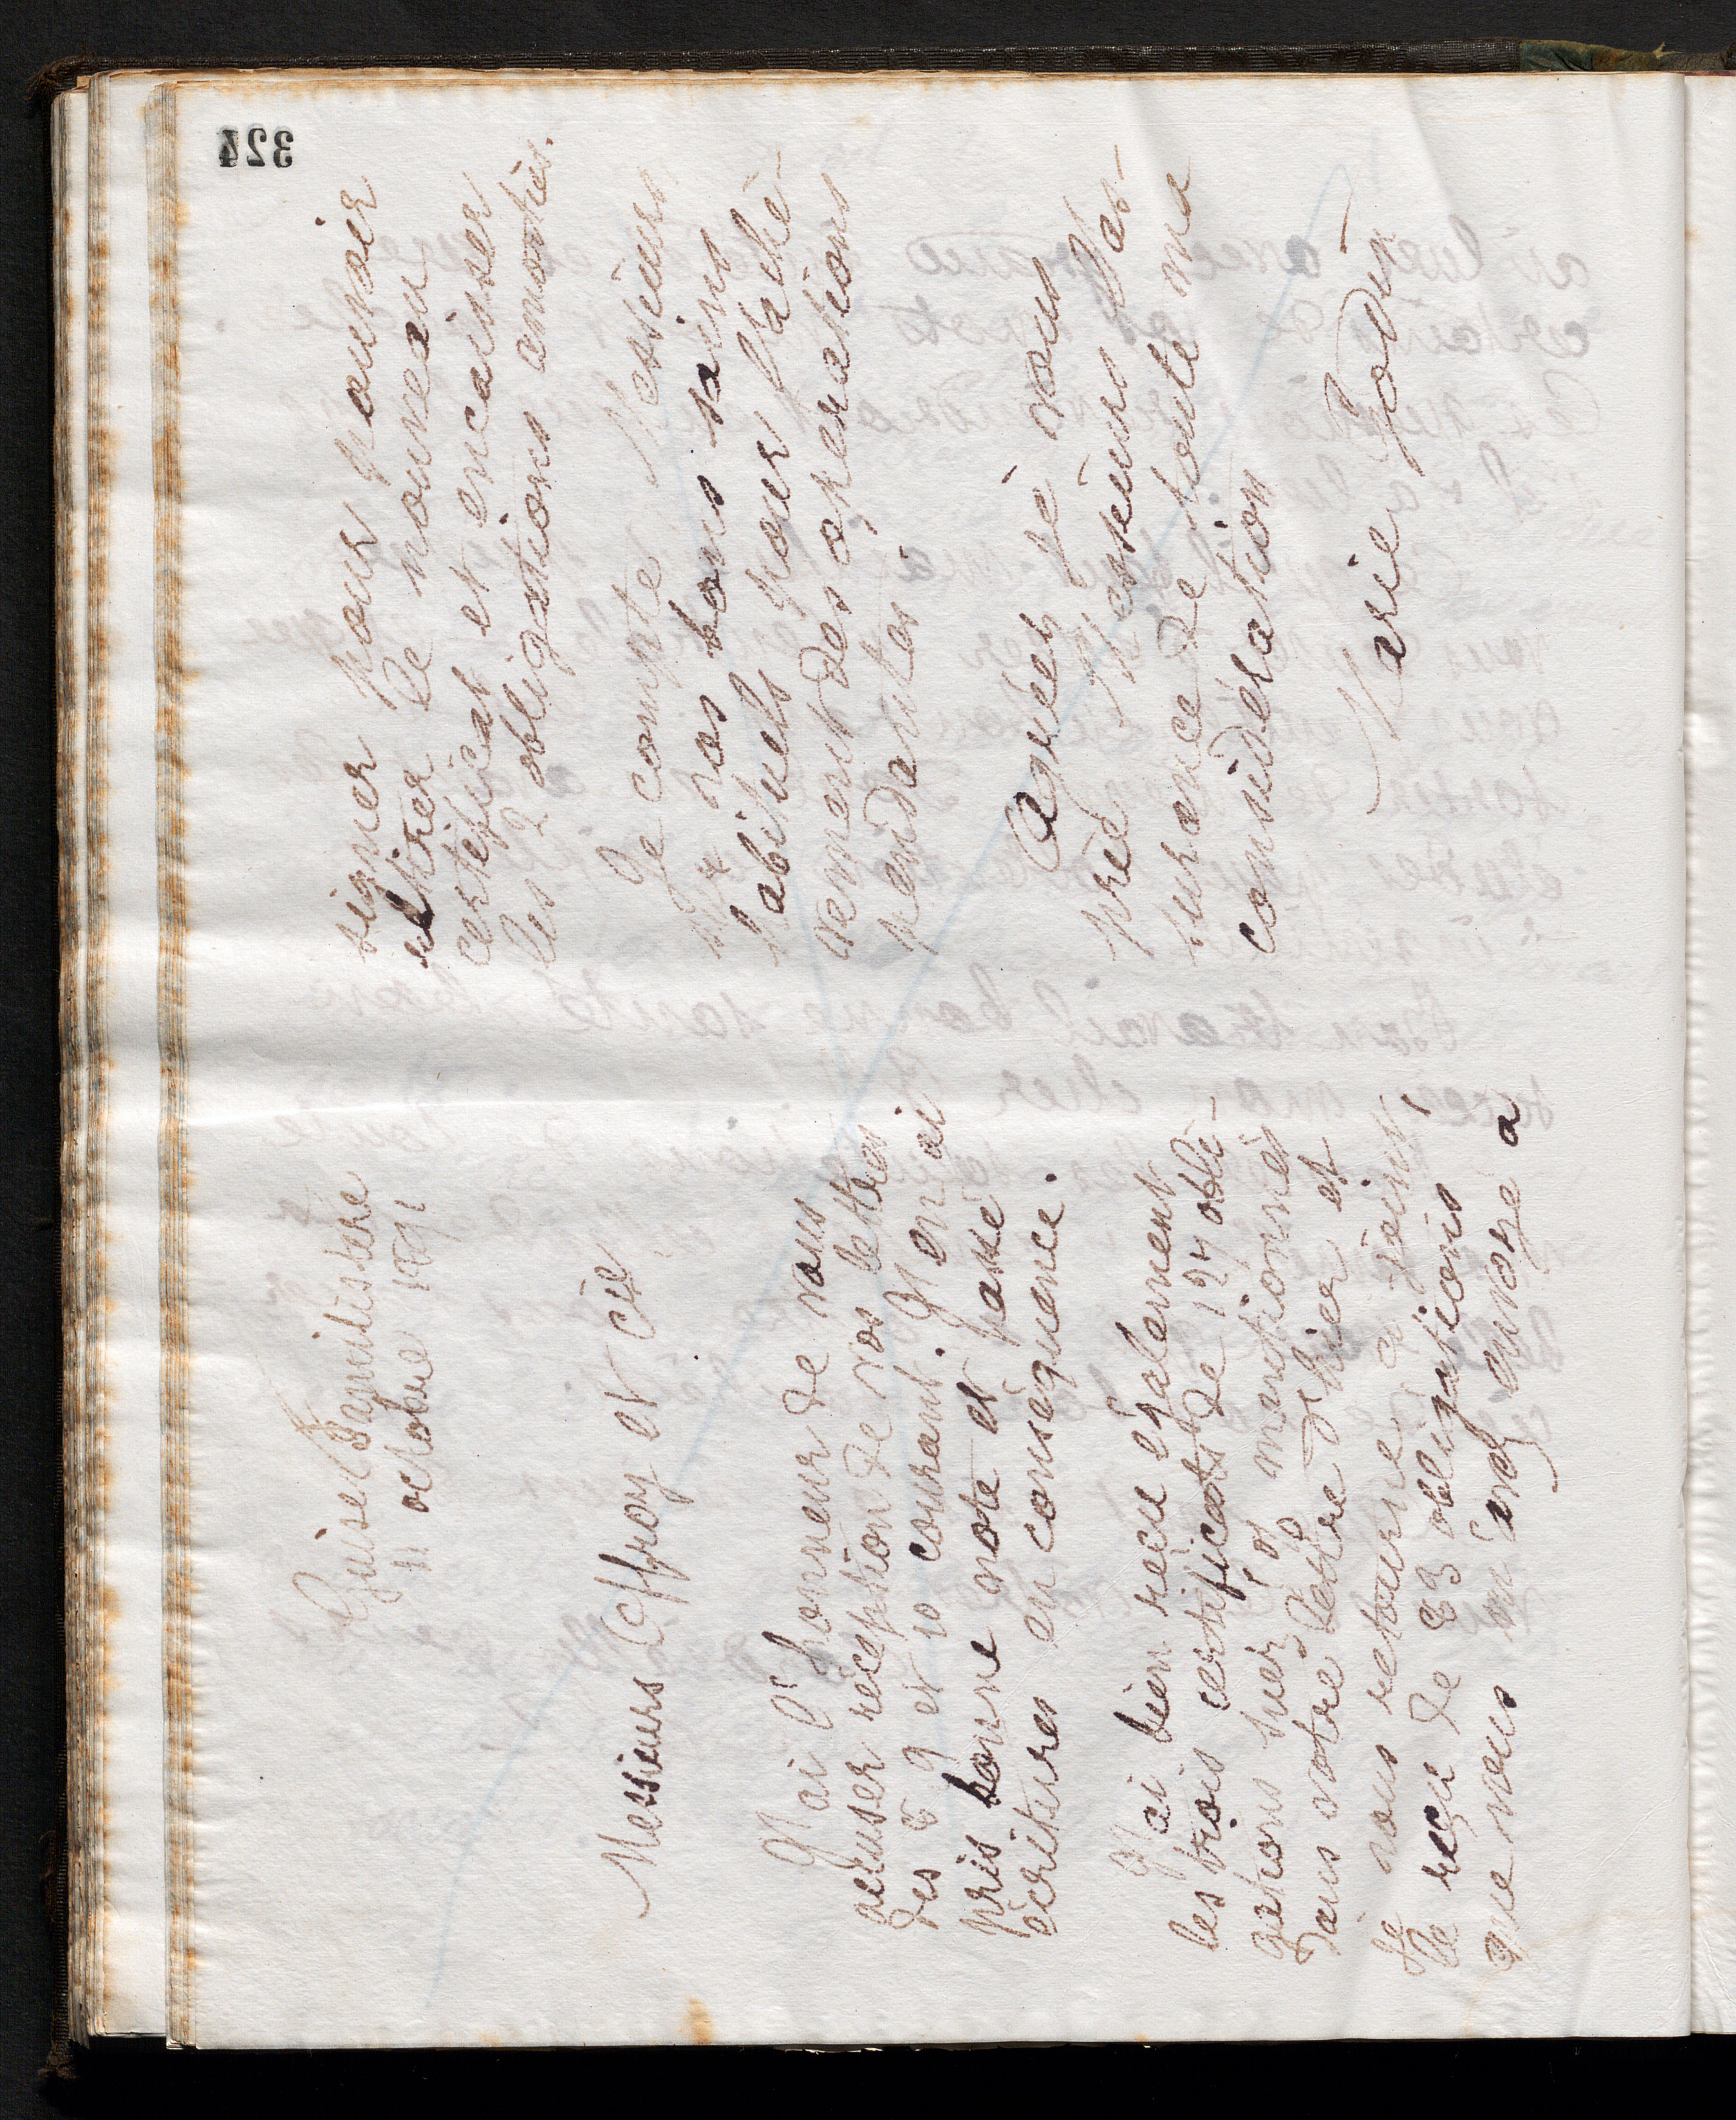 324
Guise Familistère
11 octobre 1891
Messieurs Leffroy et Cie
J'ai l'honneur de vous
accuser réception de vos lettres
des 8 9 et 10 courant. J'en ai
pris bonne note et passé
écritures en conséquence.
J'ai bien reçu également
les trois certificats de 127 obli-
gations mentionnés
dans votre lettre d'hier et
je vous retourne ci-joint
le reçu de 83 obligations
que vous m'avez envoyé à
signer pour pouvoir
retirer le nouveau
certificat et encaisser
les 2 obligations amorties.
Je compte Messieurs
sur vos bons soins
habituels pour l'achè-
vement des opérations
pendantes.
Agréez je vous
prie Messieurs l'as-
surance de toute ma
considération
Marie Godin